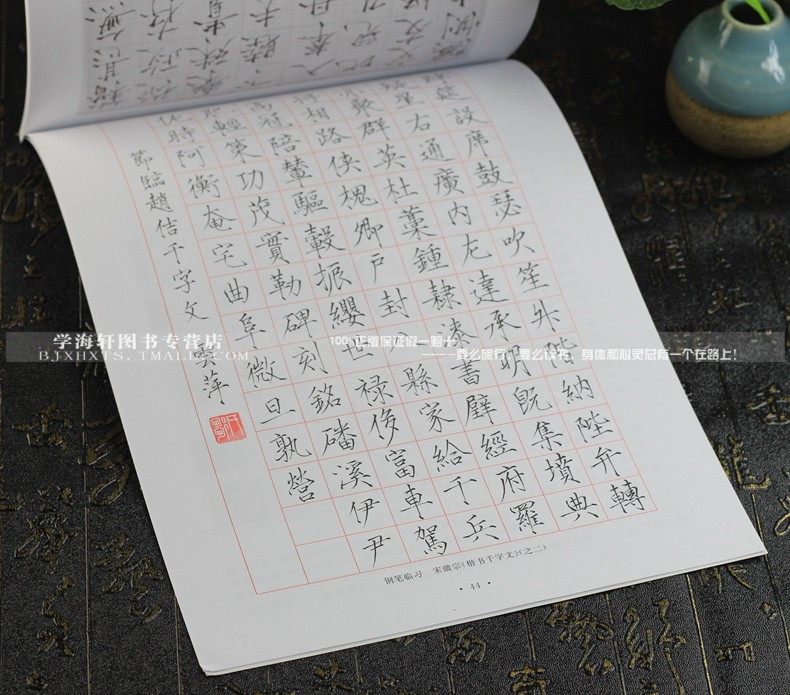 設席鼓瑟吹笙升階納陛弁轉
右通廣內左達承明既集墳典
聚群英杜藁鍾隸漆書壁經府羅
相路俠槐卿戶封縣家給千兵
冠陪輦驅轂振纓世祿侈富車駕
輕策功茂實勒碑刻銘磻溪伊尹
時阿衡奄宅曲阜微旦孰營
節臨趙佶千字文
萍
钢笔临习 宋徽宗《楷书千字文》(之二)
·44·
学海轩图书专营店
BJXHXTS.TMALL.COM
100%正版保证假一赔十
----要么旅行，要么读书，身体和心灵总有一个在路上!